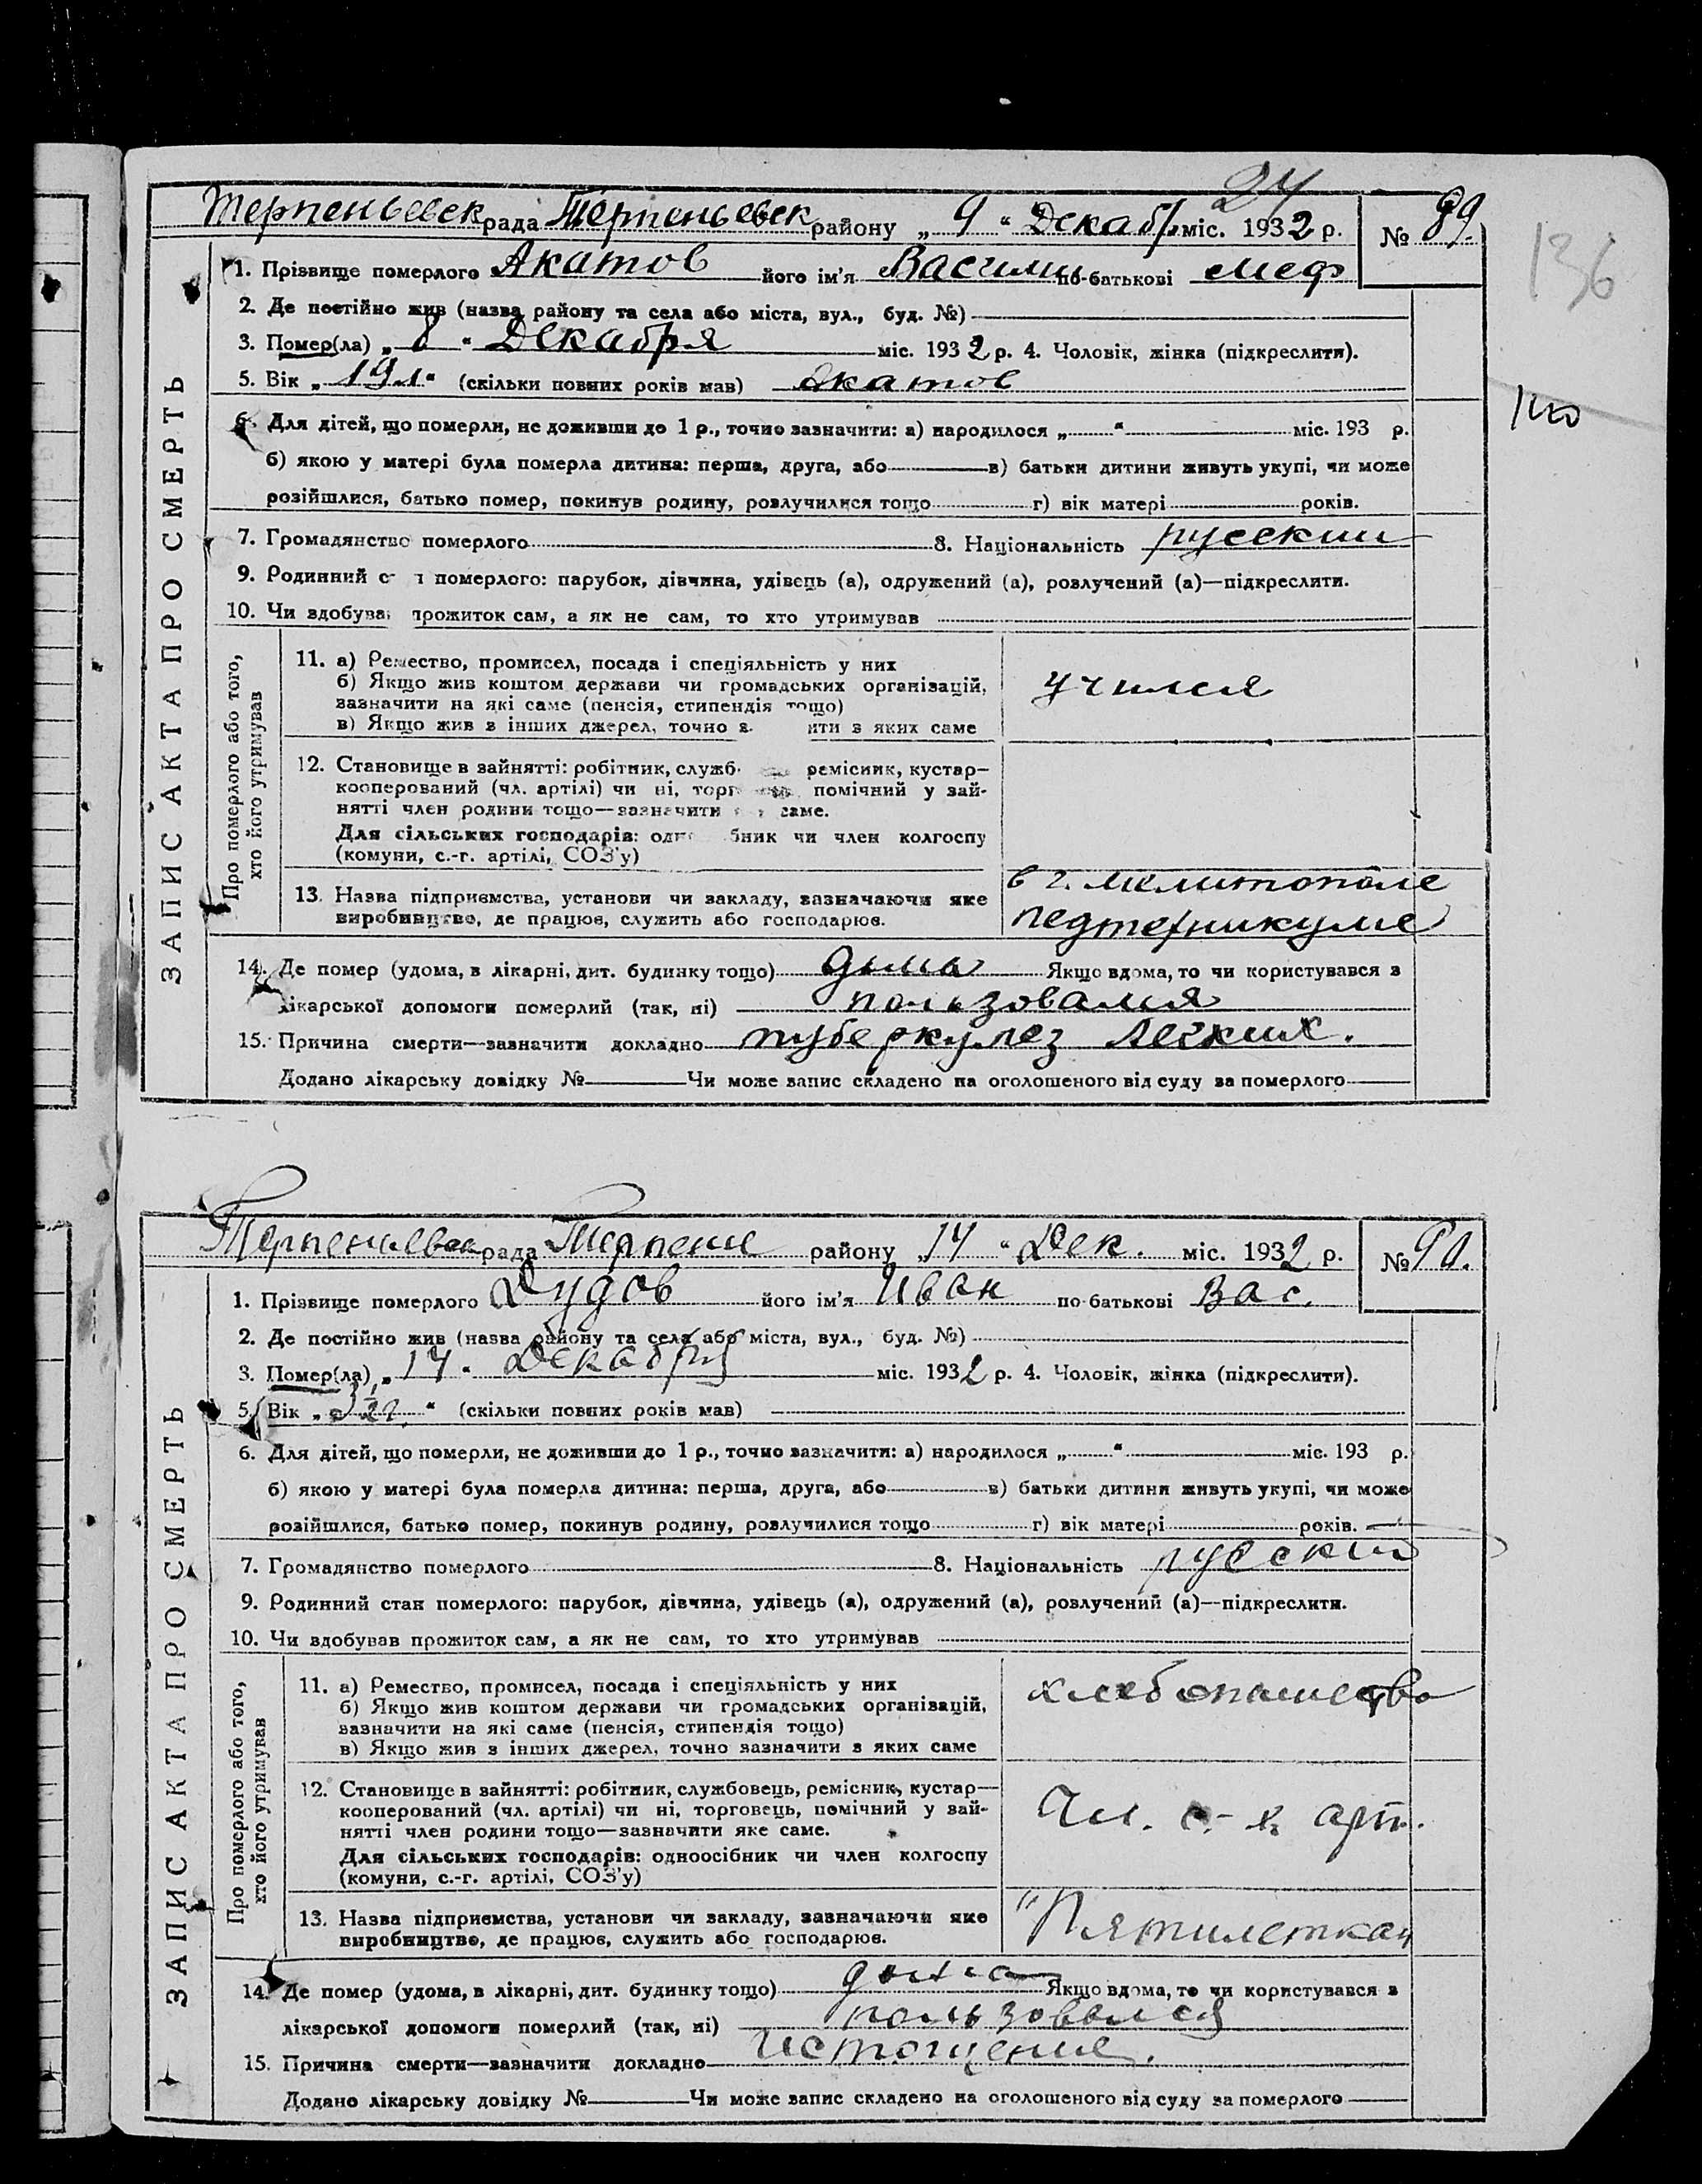 24
Терпеньевск рада Терпеньевск району „ 9 “ Декабр. міс. 1932 р. № 89.
136
1. Прізвище померлого Акатов його ім'я Василий по-батькові Меф
2. Де постійно жив (назва району та села або міста, вул., буд. №)
3. Помер(ла) „ 8 “ Декабря міс. 1932 р. 4. Чоловік, жінка (підкреслити).
5. Вік „ 19 л “ (скільки повних років мав) Акатов
6. Для дітей, що померли, не доживши до 1 р., точно зазначити: а) народилося „ “ міс. 193 р.
б) якою у матері була померла дитина: перша, друга, або в) батьки дитини живуть укупі, чи може
розійшлися, батько помер, покинув родину, розлучилися тощо г) вік матері років.
7. Громадянство померлого 8. Національність русский
9. Родинний с н померлого: парубок, дівчина, удівець (а), одружений (а), розлучений (а)—підкреслити.
10. Чи здобува прожиток сам, а як не сам, то хто утримував
ЗАПИС АКТА ПРО СМЕРТЬ
Про померлого або того,
хто його утримував
11. а) Ремество, промисел, посада і спеціяльність у них
б) Якщо жив коштом держави чи громадських організацій,
зазначити на які саме (пенсія, стипендія тощо)
в) Якщо жив з інших джерел, точно з ити з яких саме
учился
12. Становище в зайнятті: робітник, служб ремісник, кустар—
кооперований (чл. артілі) чи ні, торг помічний у зай-
нятті член родини тощо—зазначити саме.
Для сільських господарів: одно бник чи член колгоспу
(комуни, с.-г. артілі, СОЗ'у)
13. Назва підприємства, установи чи закладу, зазначаючи яке
виробництво, де працює, служить або господарює.
в г. Мелитополе
педтехникуме
14. Де помер (удома, в лікарні, дит. будинку тощо) дома Якщо вдома, то чи користувався з
лікарської допомоги померлий (так, ні) пользовался
15. Причина смерти—зазначити докладно туберкулез легких.
Додано лікарську довідку № Чи може запис складено на оголошеного від суду за померлого
Терпеньевск рада Терпение району „ 14 “ Дек. міс. 1932 р. № 90.
1. Прізвище померлого Дудов його ім'я Иван по-батькові Вас.
2. Де постійно жив (назва району та села або міста, вул., буд. №)
3. Помер(ла) „ 14 “ Декабря міс. 1932 р. 4. Чоловік, жінка (підкреслити).
5. Вік „ 32 г. “ (скільки повних років мав)
6. Для дітей, що померли, не доживши до 1 р., точно зазначити: а) народилося „ “ міс. 193 р.
б) якою у матері була померла дитина: перша, друга, або в) батьки дитини живуть укупі, чи може
розійшлися, батько помер, покинув родину, розлучилися тощо г) вік матері років.
7. Громадянство померлого 8. Національність русский
9. Родинний стан померлого: парубок, дівчина, удівець (а), одружений (а), розлучений (а)—підкреслити.
10. Чи здобував прожиток сам, а як не сам, то хто утримував
ЗАПИС АКТА ПРО СМЕРТЬ
Про померлого або того,
хто його утримував
11. а) Ремество, промисел, посада і спеціяльність у них
б) Якщо жив коштом держави чи громадських організацій,
зазначити на які саме (пенсія, стипендія тощо)
в) Якщо жив з інших джерел, точно зазначити з яких саме
хлебопашество
12. Становище в зайнятті: робітник, службовець, ремісник, кустар—
кооперований (чл. артілі) чи ні, торговець, помічний у зай-
нятті член родини тощо—зазначити яке саме.
Для сільських господарів: одноосібник чи член колгоспу
(комуни, с.-г. артілі, СОЗ'у)
Чл. с.-х. арт.
13. Назва підприємства, установи чи закладу, зазначаючи яке
виробництво, де працює, служить або господарює.
"Пятилетка"
14. Де помер (удома, в лікарні, дит. будинку тощо) дома Якщо вдома, то чи користувався з
лікарської допомоги померлий (так, ні) пользовался
15. Причина смерти—зазначити докладно истощение.
Додано лікарську довідку № Чи може запис складено на оголошеного від суду за померлого